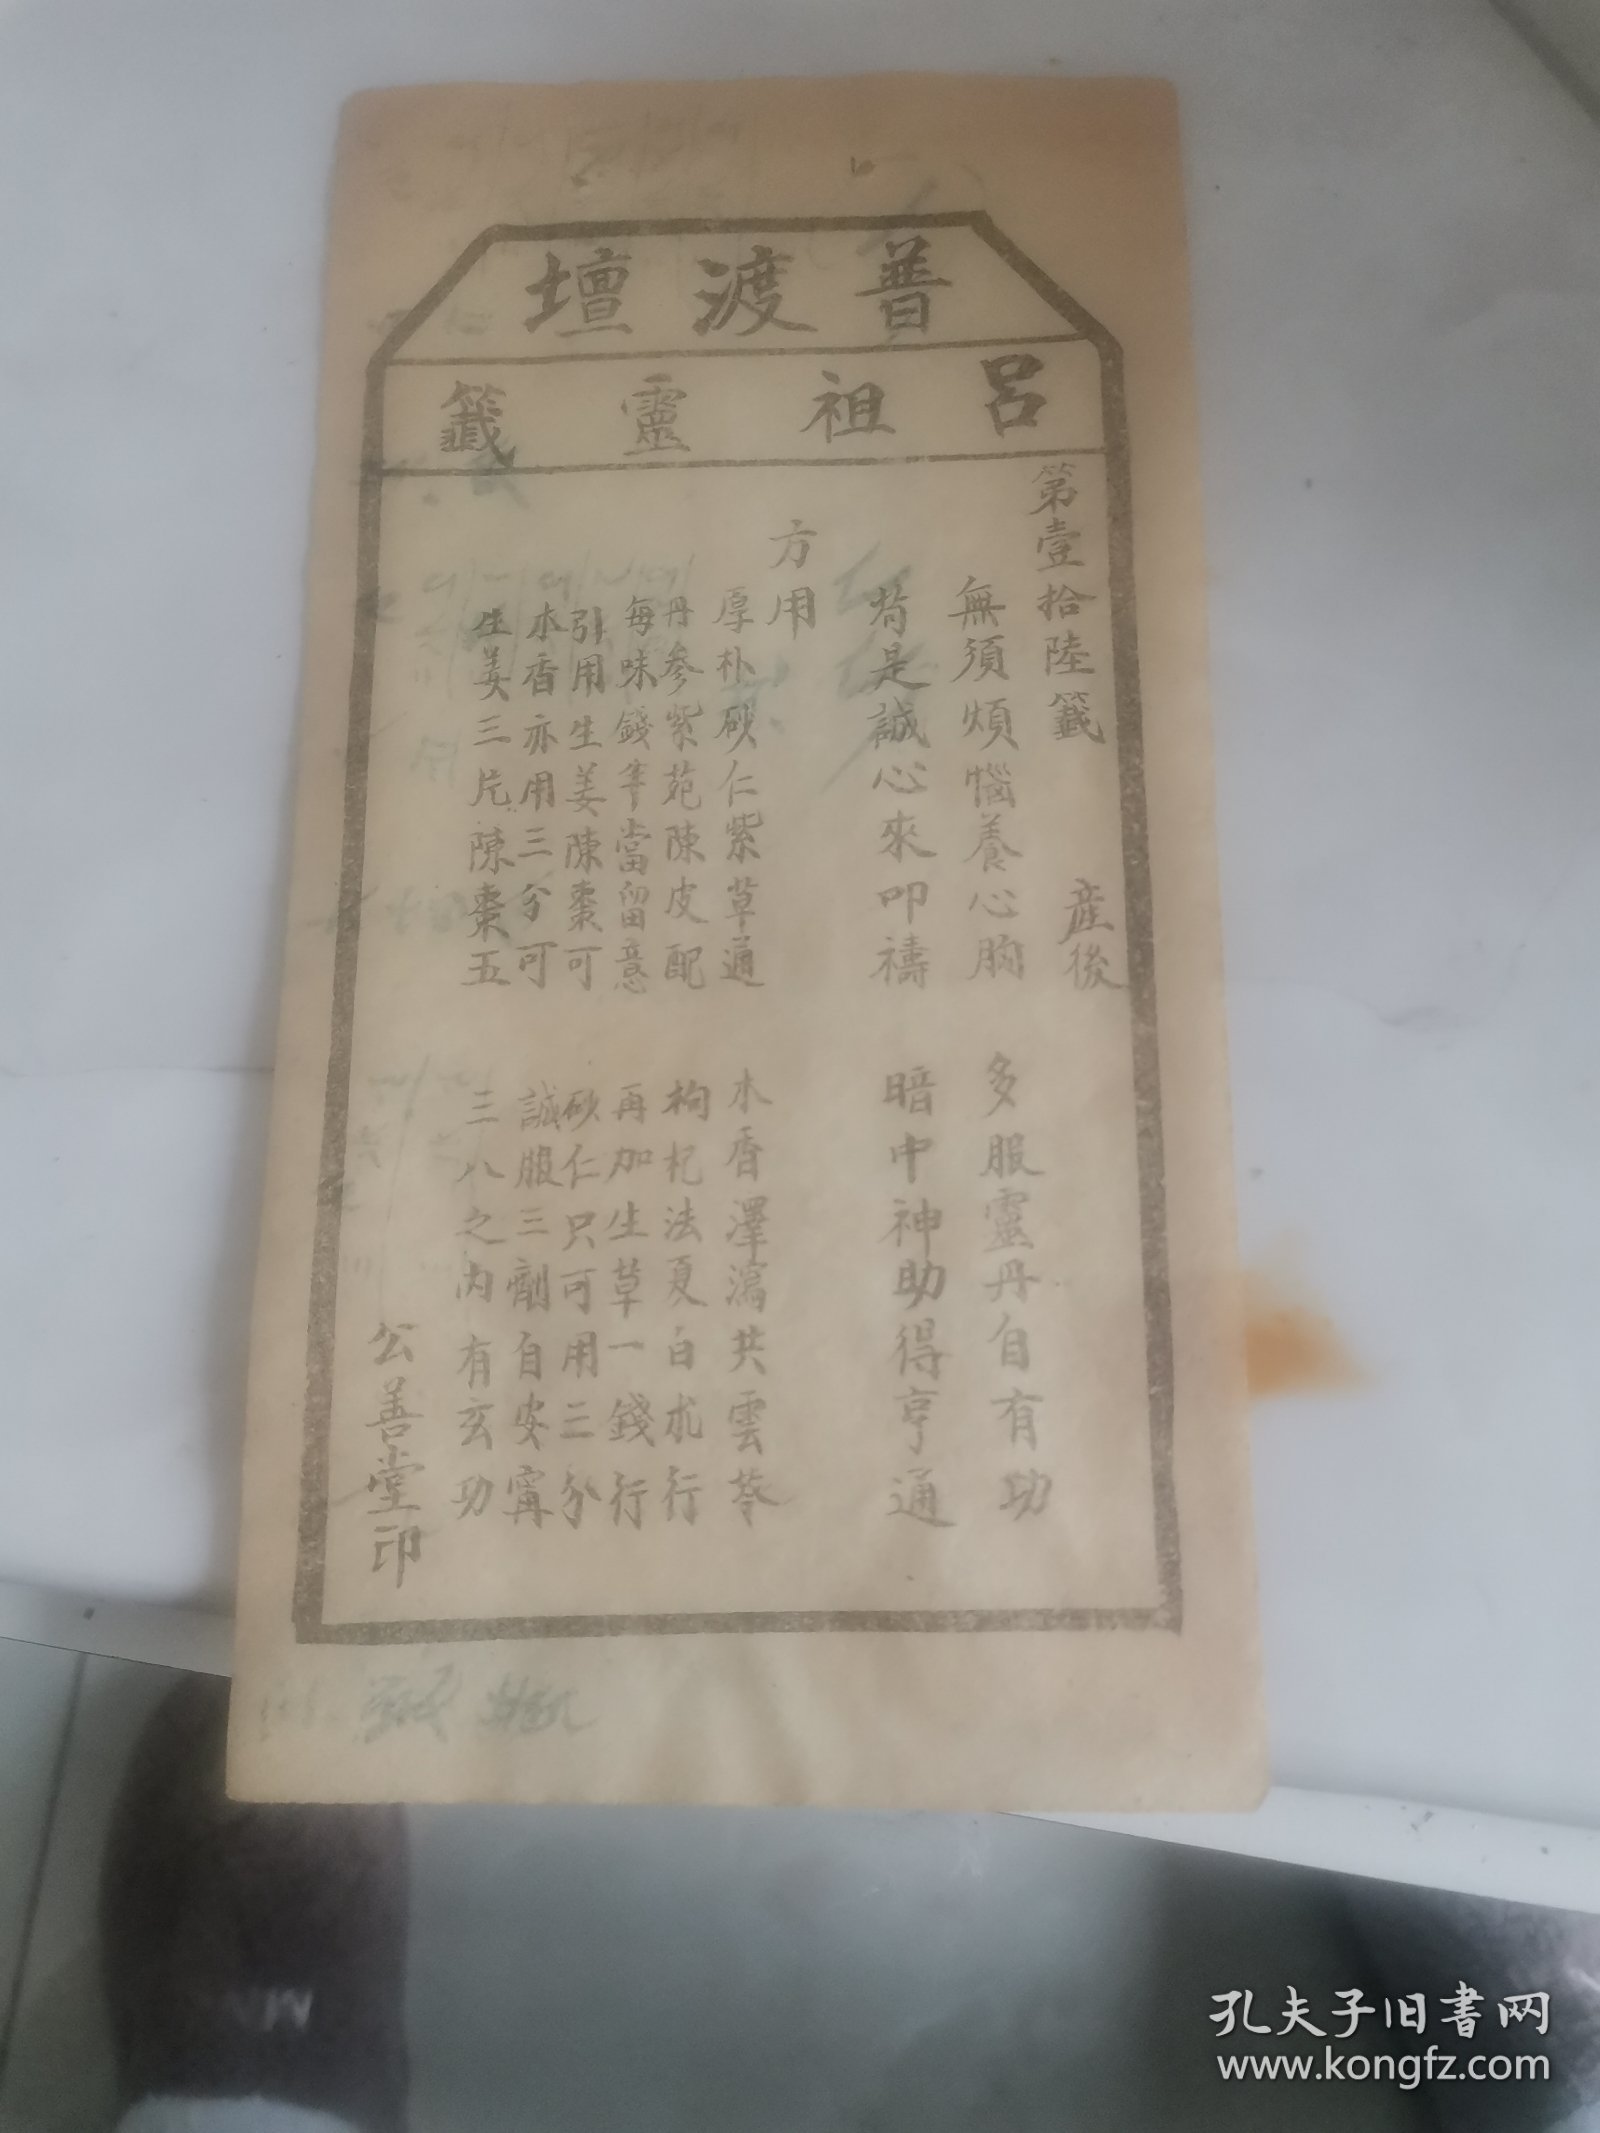 普渡壇
呂祖靈籤
第壹拾陸籤 産後
無須煩惱養心胸 多服靈丹自有功
苟是誠心來叩禱 暗中神助得亨通
方用
厚朴砂仁紫草通 木香澤瀉共雲苓
丹参紫苑陳皮配 枸杞法夏白朮行
每味錢半當留意 再加生草一錢行
引用生姜陳棗可 砂仁只可用三分
木香亦用三分可 誠服三劑自安寗
生姜三片陳棗五 三八之内有玄功
公善堂印
孔夫子旧書网
www.kongfz.com